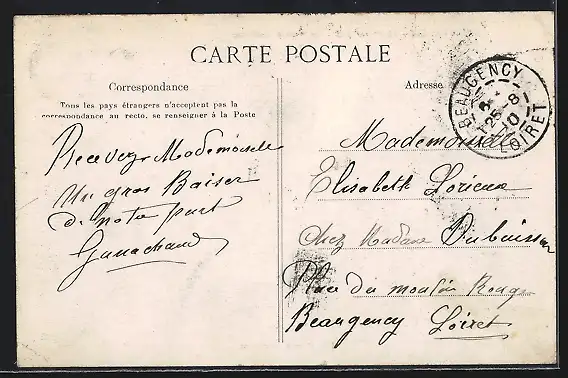 CARTE POSTALE
Correspondance
Tous les pays étrangers n'acceptent pas la
correspondance au recto, se renseigner à la Poste
Recevez Mademoiselle
Un gros Baiser
de notre part
Adresse
BEAUGENCY
25 - 8
10
LOIRET
Mademoiselle
Elisabeth Lorieux
chez Madame Dubuisson
Place du moulin Rouge
Beaugency Loiret